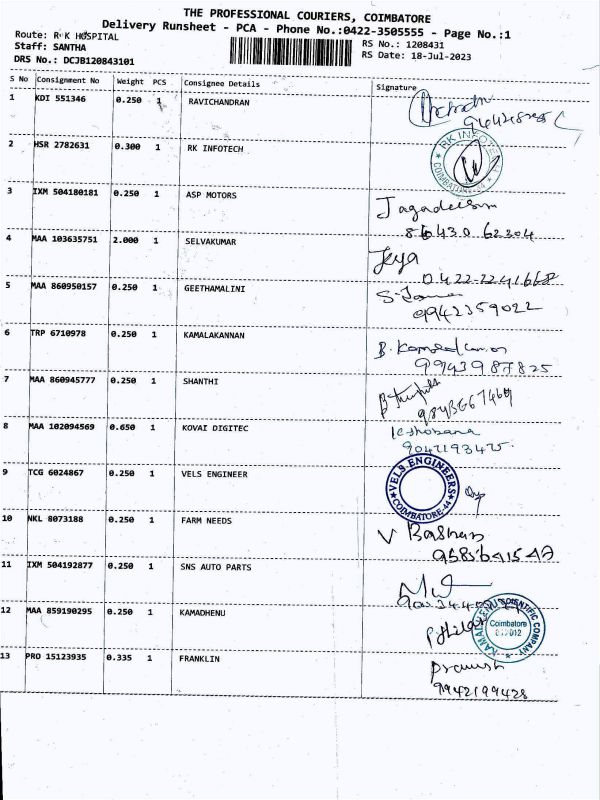 THE PROFESSIONAL COURIERS, COIMBATORE
Delivery Runsheet - PCA - Phone No.:0422-3505555 - Page No.:1
Route: R K HOSPITAL
RS No.: 1208431
Staff: SANTHA
RS Date: 18-Jul-2023
DRS No.: DCJB120843101
S No Consignment No Weight PCS Consignee Details Signature
1 KDI 551346 0.250 1 RAVICHANDRAN
2 HSR 2782631 0.300 1 RK INFOTECH
RK INFOTECH
COIMBATORE-44
3 IXM 504180181 0.250 1 ASP MOTORS
4 MAA 103635751 2.000 1 SELVAKUMAR Jeya
0422-2241668
5 MAA 860950157 0.250 1 GEETHAMALINI
9942359022
6 TRP 6710978 0.250 1 KAMALAKANNAN
9943987825
7 MAA 860945777 0.250 1 SHANTHI
8 MAA 102094569 0.650 1 KOVAI DIGITEC
9042193425
9 TCG 6024867 0.250 1 VELS ENGINEER
VELS ENGINEERS
COIMBATORE-44
10 NKL 8073188 0.250 1 FARM NEEDS
11 IXM 504192877 0.250 1 SNS AUTO PARTS
12 MAA 859190295 0.250 1 KAMADHENU
KAMADHENU SCIENTIFIC COMPANY
Coimbatore
13 PRO 15123935 0.335 1 FRANKLIN
9942199428